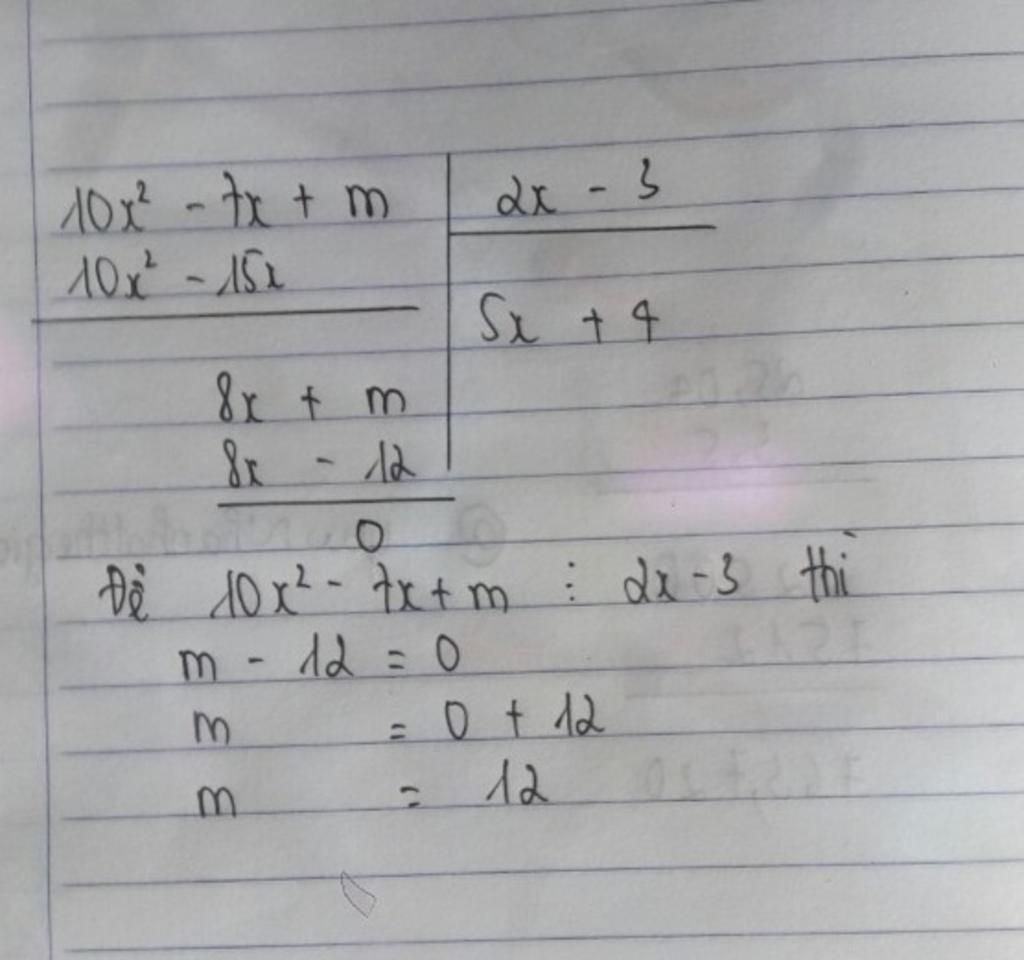 10x² - 7x + m | 2x - 3
10x² - 15x
5x + 4
8x + m
8x - 12
0
Để 10x² - 7x + m ⋮ 2x - 3 thì
m - 12 = 0
m = 0 + 12
m = 12